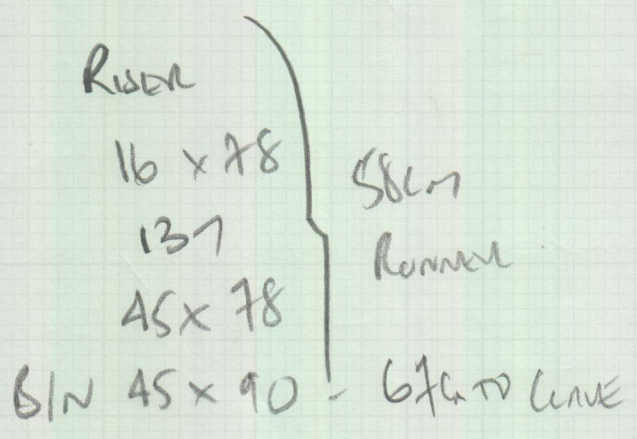 RISER
16 x 78
137
45 x 78
B/N 45 x 90 - 67cm TO CURVE
58cm
RUNNER